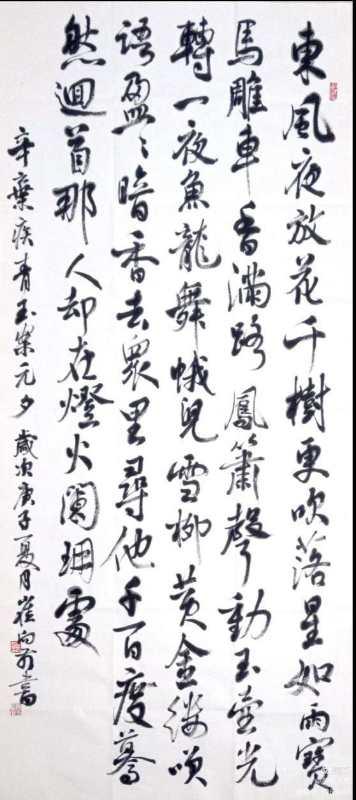 東風夜放花千樹更吹落星如雨寶
馬雕車香滿路鳳簫聲動玉壺光
轉一夜魚龍舞蛾兒雪柳黃金縷笑
語盈〻暗香去衆里尋他千百度驀
然迴首那人却在燈火闌珊處
辛棄疾青玉案元夕 歲次庚子夏月崔向前書